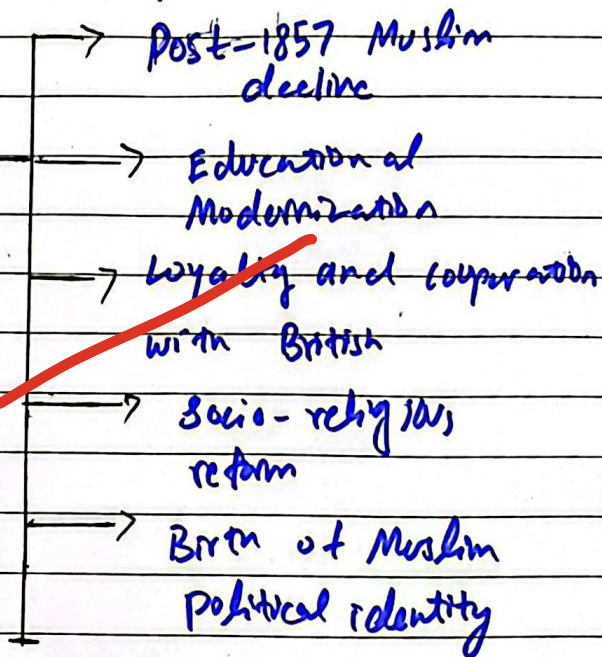 Post-1857 Muslim
decline
Educational
Modernization
Loyalty and cooperation
with British
Socio-religious
reform
Birth of Muslim
Political identity